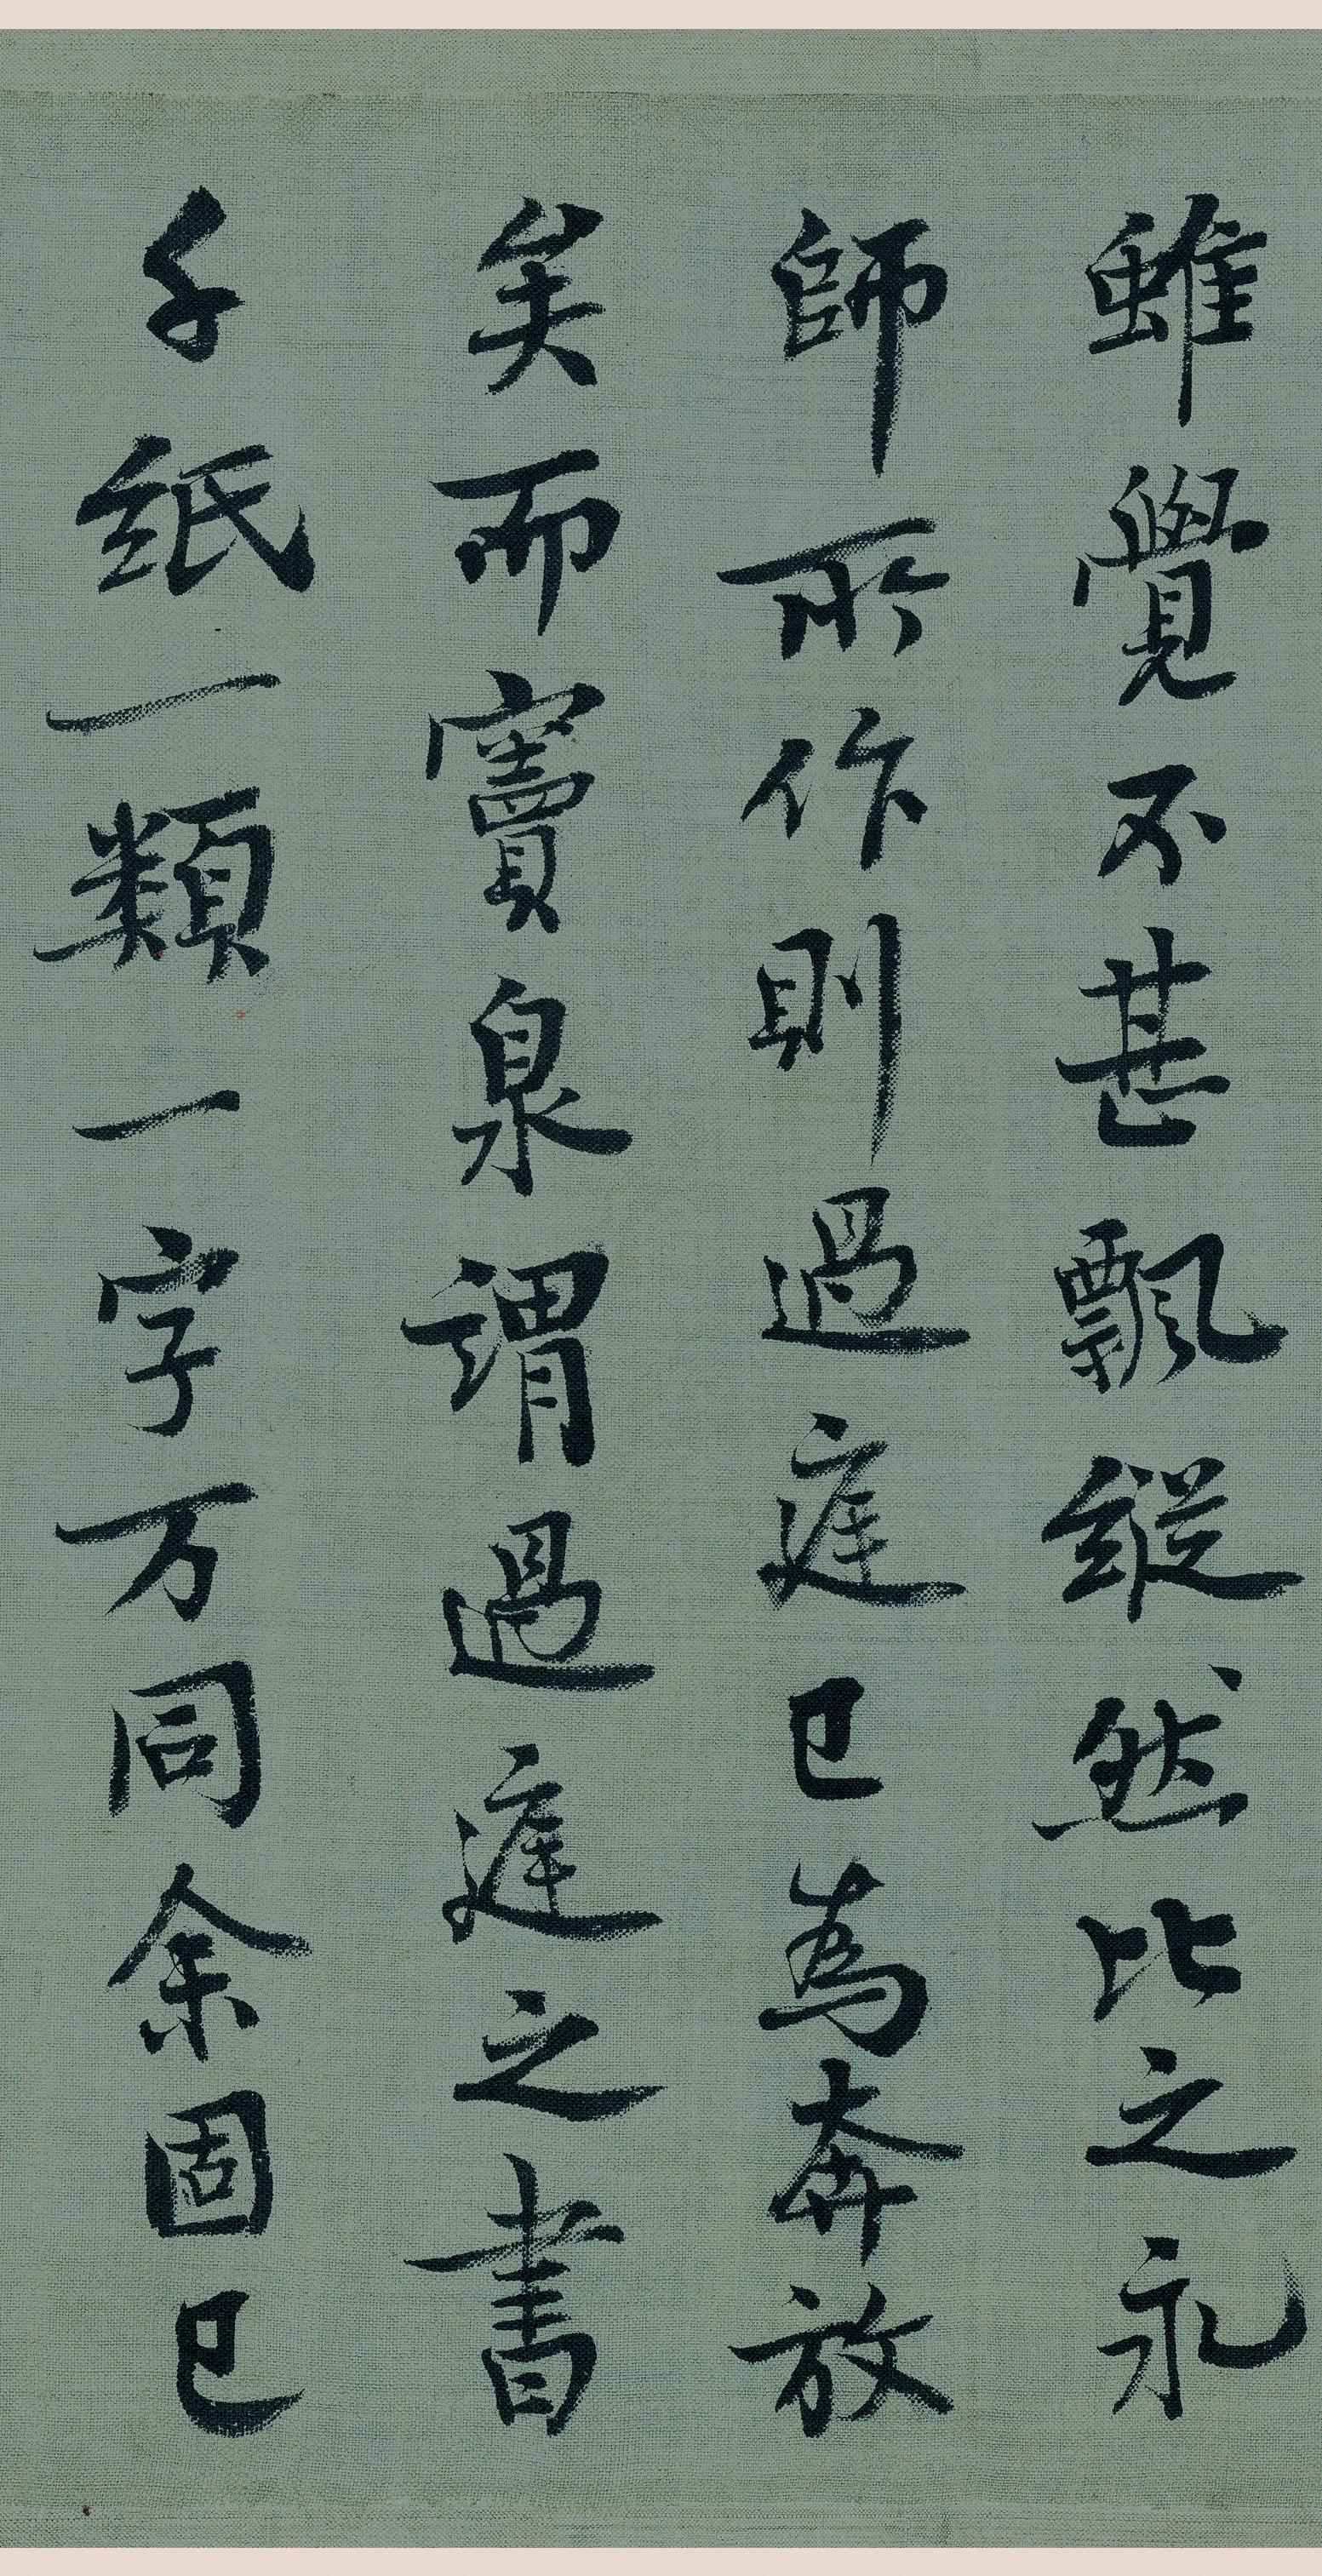 雖覺不甚飄縱然比之永
師所作則過庭已為奔放
矣而竇泉謂過庭之書
千紙一類一字万同余固已